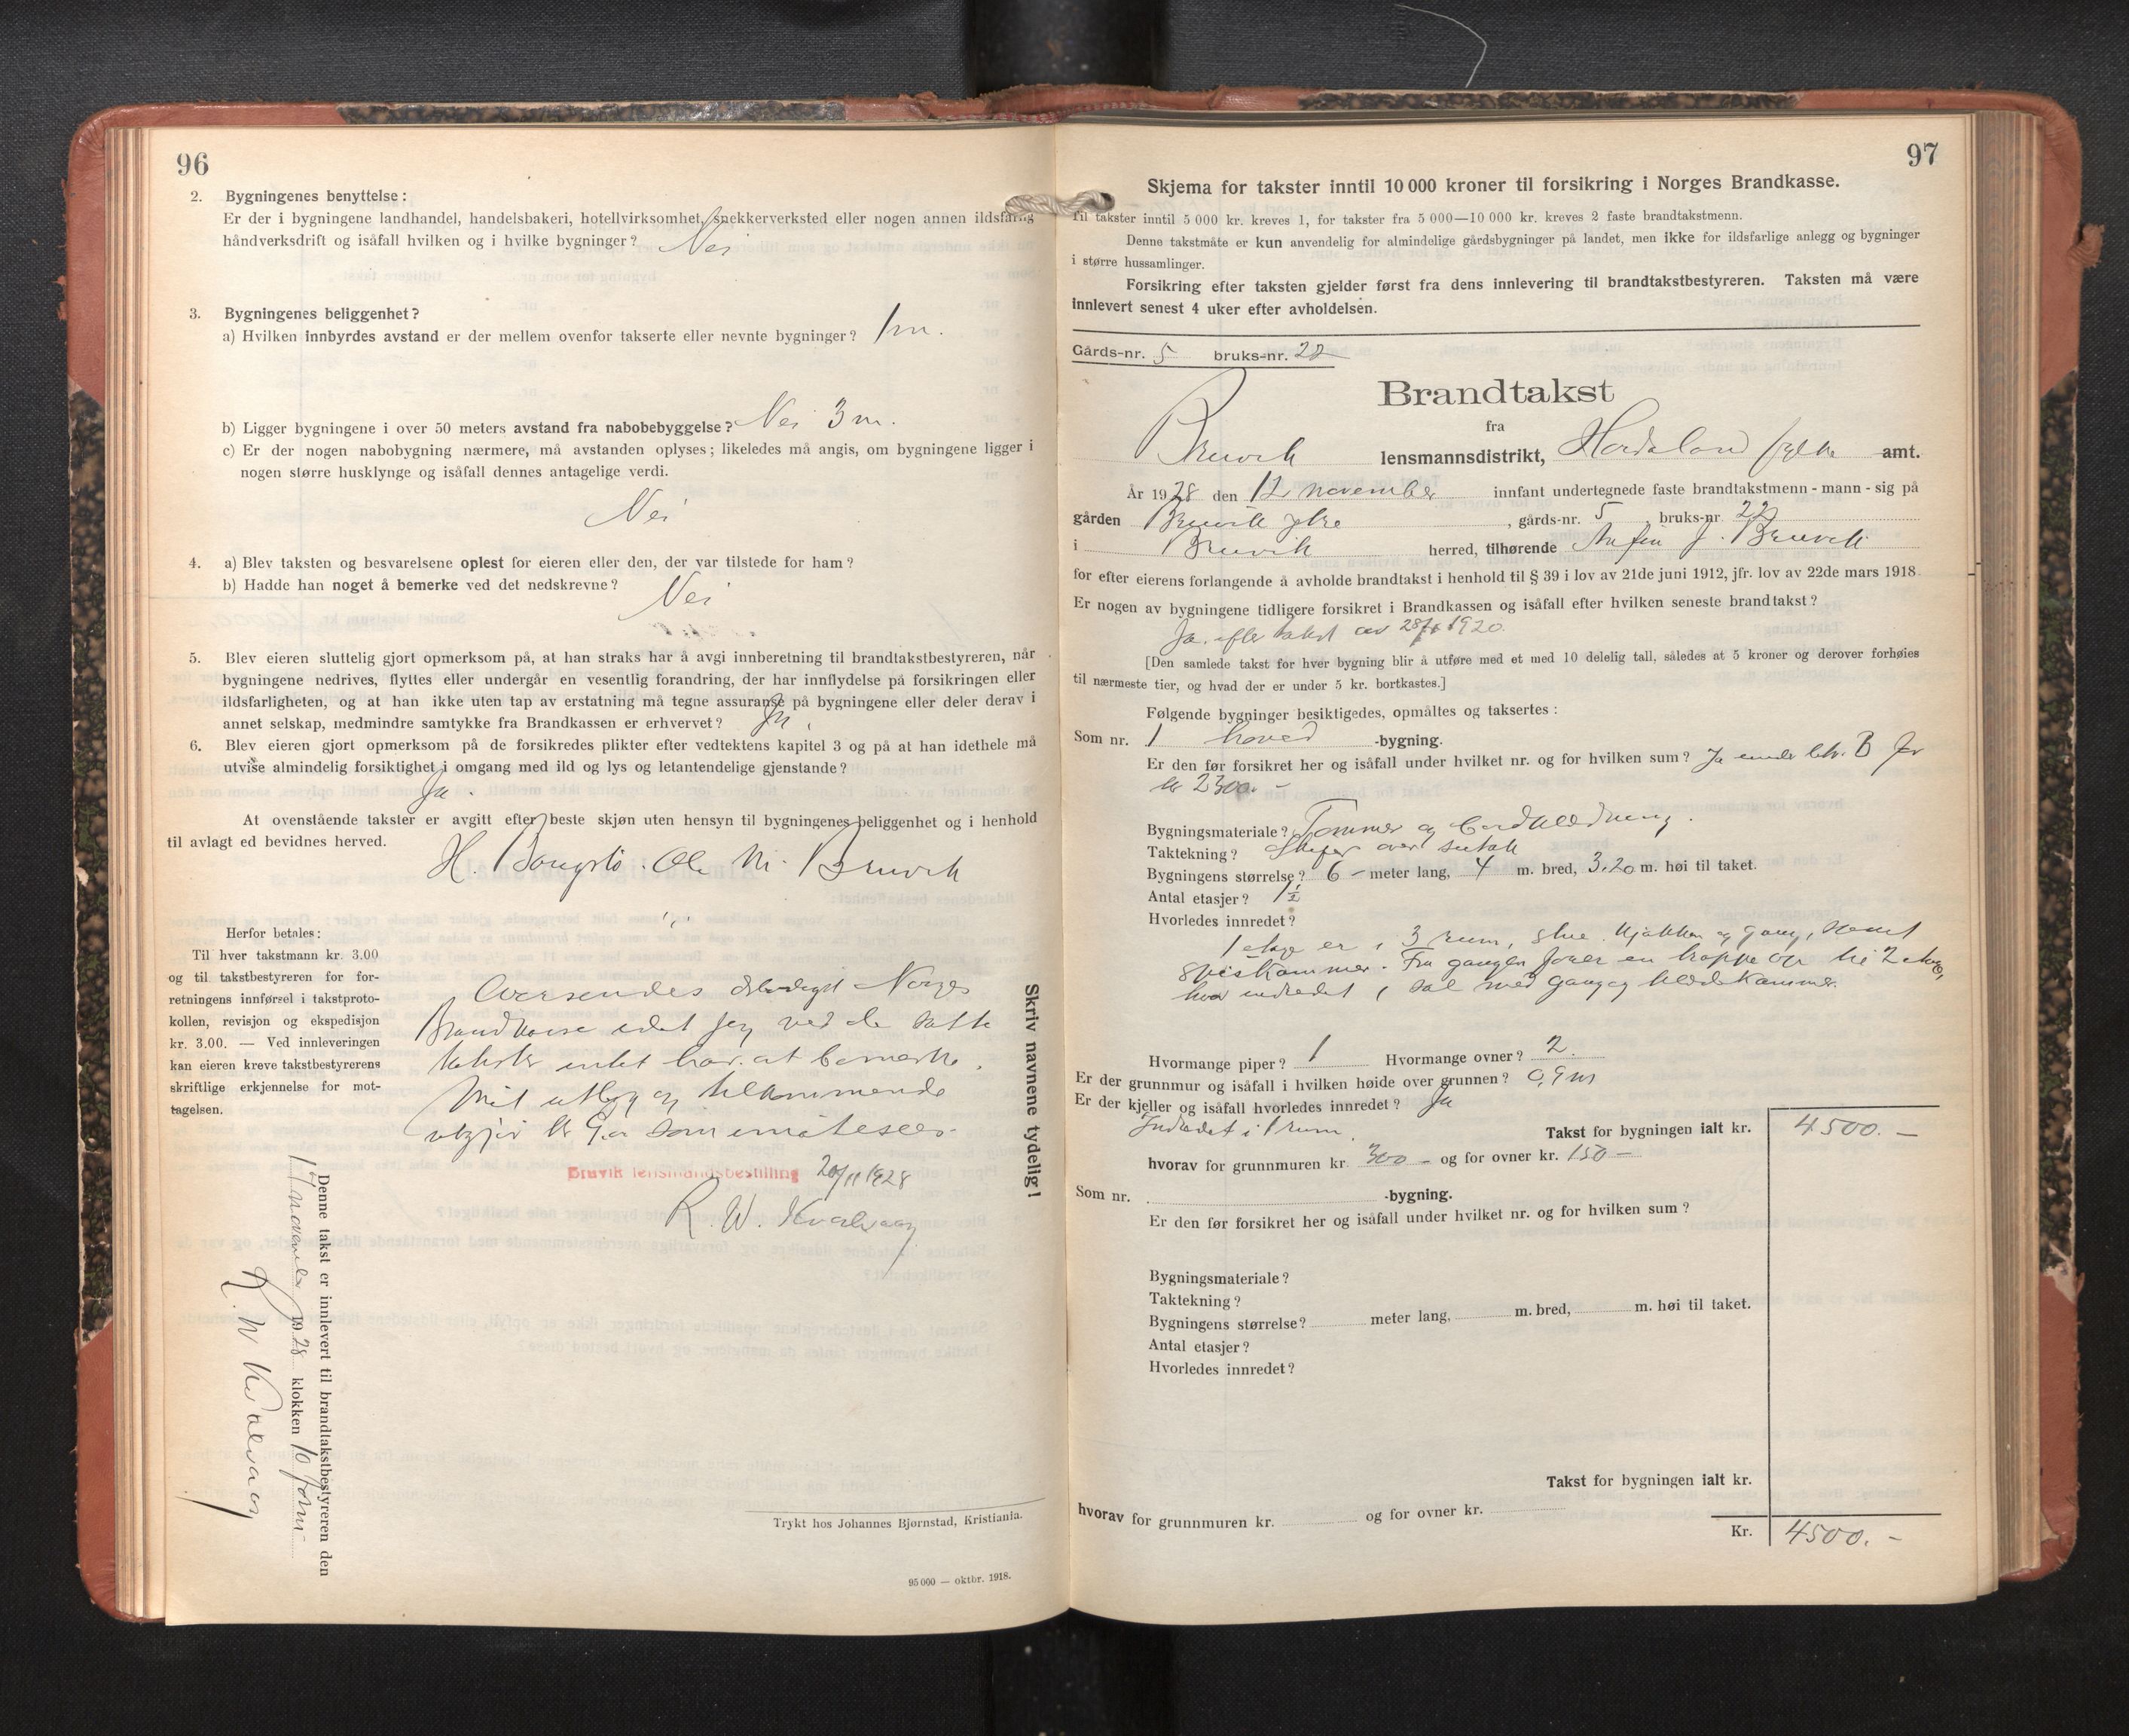 96
2. Bygningenes benyttelse:
Er der i bygningene landhandel, handelsbakeri, hotellvirksomhet, snekkerverksted eller nogen annen ildsfarlig
håndverksdrift og isåfall hvilken og i hvilke bygninger? Nei
3. Bygningenes beliggenhet?
a) Hvilken innbyrdes avstand er der mellem ovenfor takserte eller nevnte bygninger? 1 m.
b) Ligger bygningene i over 50 meters avstand fra nabobebyggelse? Nei 3 m.
c) Er der nogen nabobygning nærmere, må avstanden oplyses; likeledes må angis, om bygningene ligger i
nogen større husklynge og isåfall dennes antagelige verdi.
Nei
4. a) Blev taksten og besvarelsene oplest for eieren eller den, der var tilstede for ham?
b) Hadde han noget å bemerke ved det nedskrevne?
Nei
5. Blev eieren sluttelig gjort opmerksom på, at han straks har å avgi innberetning til brandtakstbestyreren, når
bygningene nedrives, flyttes eller undergår en vesentlig forandring, der har innflydelse på forsikringen eller
ildsfarligheten, og at han ikke uten tap av erstatning må tegne assuranse på bygningene eller deler derav i
annet selskap, medmindre samtykke fra Brandkassen er erhvervet? Ja.
6. Blev eieren gjort opmerksom på de forsikredes plikter efter vedtektens kapitel 3 og på at han idethele må
utvise almindelig forsiktighet i omgang med ild og lys og letantendelige gjenstande?
Ja.
At ovenstående takster er avgitt efter beste skjøn uten hensyn til bygningenes beliggenhet og i henhold
til avlagt ed bevidnes herved.
Ole M. Bruvik
Herfor betales:
Til hver takstmann kr. 3.00
og til takstbestyreren for for-
retningens innførsel i takstproto-
kollen, revisjon og ekspedisjon
kr. 3.00. — Ved innleveringen
kan eieren kreve takstbestyrerens
skriftlige erkjennelse for mot-
tagelsen.
Oversendes Norges
Brandkasse idet jeg ved de satte
takster intet har at bemerke.
Mit utlæg og tilkommende
utgjør kr 9.00 som
Bruvik lensmandsbestilling 20/11 1928
R. W. Kvalvaag
Skriv navnene tydelig!
Denne takst er innlevert til brandtakstbestyreren den
17 november 1928 klokken 10 form
R. W. Kvalvaag
Trykt hos Johannes Bjørnstad, Kristiania.
95 000 — oktbr. 1918.
97
Skjema for takster inntil 10 000 kroner til forsikring i Norges Brandkasse.
Til takster inntil 5 000 kr. kreves 1, for takster fra 5 000—10 000 kr. kreves 2 faste brandtakstmenn.
Denne takstmåte er kun anvendelig for almindelige gårdsbygninger på landet, men ikke for ildsfarlige anlegg og bygninger
i større hussamlinger.
Forsikring efter taksten gjelder først fra dens innlevering til brandtakstbestyreren. Taksten må være
innlevert senest 4 uker efter avholdelsen.
Gårds-nr. 5 bruks-nr. 22
Brandtakst
fra
Bruvik lensmannsdistrikt, Hordaland fylke amt.
År 1928 den 12 november innfant undertegnede faste brandtakstmenn - mann - sig på
gården Bruvik ytre, gårds-nr. 5 bruks-nr. 22
i Bruvik herred, tilhørende Anfin J. Bruvik
for efter eierens forlangende å avholde brandtakst i henhold til § 39 i lov av 21de juni 1912, jfr. lov av 22de mars 1918.
Er nogen av bygningene tidligere forsikret i Brandkassen og isåfall efter hvilken seneste brandtakst?
Ja. efter takst av 1920.
[Den samlede takst for hver bygning blir å utføre med et med 10 delelig tall, således at 5 kroner og derover forhøies
til nærmeste tier, og hvad der er under 5 kr. bortkastes.]
Følgende bygninger besiktigedes, opmåltes og taksertes:
Som nr. 1 hoved -bygning.
Er den før forsikret her og isåfall under hvilket nr. og for hvilken sum? Ja under litr. B for
kr 2300.-
Bygningsmateriale? Tømmer og bordklædning.
Taktekning? Skifer over sutak
Bygningens størrelse? 6 - meter lang, 4 m. bred, 3.20 m. høi til taket.
Antal etasjer? 1½
Hvorledes innredet?
1 etage er i 3 rum, stue, kjøkken og gang, samt
spiskammer. Fra gangen fører en trappe op til 2 etage,
hvor indredet 1 sal med gang og klædskammer.
Hvormange piper? 1 Hvormange ovner? 2
Er der grunnmur og isåfall i hvilken høide over grunnen? 0,9 m
Er der kjeller og isåfall hvorledes innredet? Ja
Indredet i 1 rum. Takst for bygningen ialt kr. 4500.-
hvorav for grunnmuren kr. 300 - og for ovner kr. 150 -
Som nr. -bygning.
Er den før forsikret her og isåfall under hvilket nr. og for hvilken sum?
Bygningsmateriale?
Taktekning?
Bygningens størrelse? meter lang, m. bred, m. høi til taket.
Antal etasjer?
Hvorledes innredet?
Takst for bygningen ialt kr.
hvorav for grunnmuren kr. og for ovner kr.
Kr. 4500.-